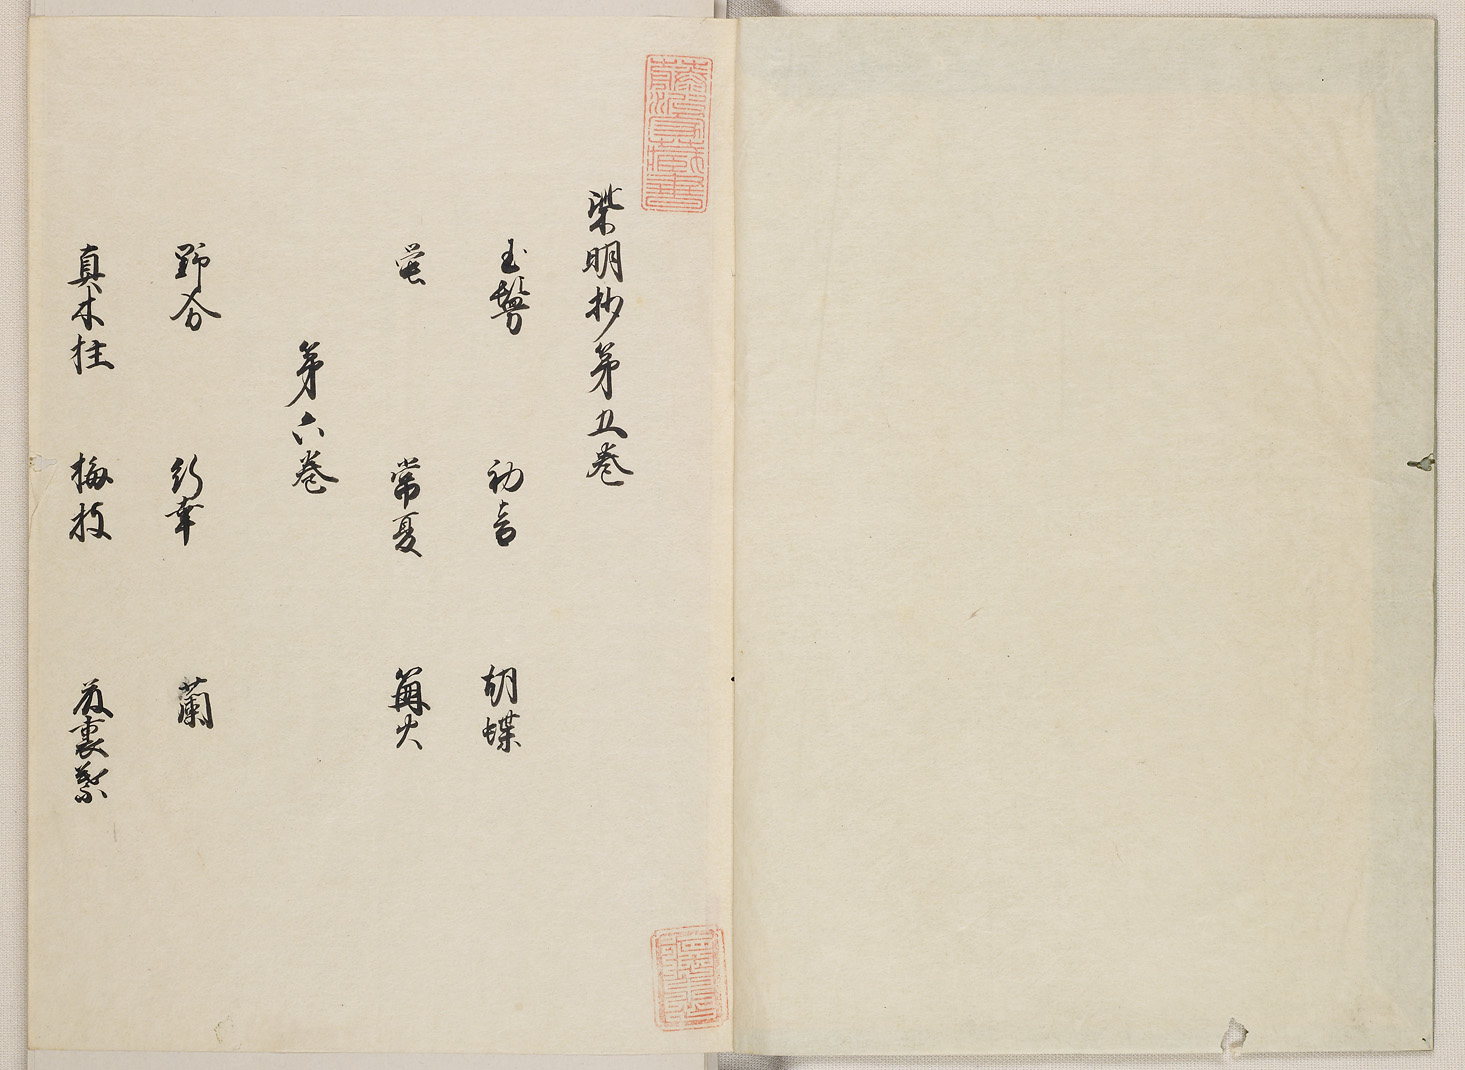 紫明抄第五巻
玉鬘 初音 胡蝶
蛍 常夏 篝火
第六巻
野分 行幸 蘭
真木柱 梅枝 藤裏葉